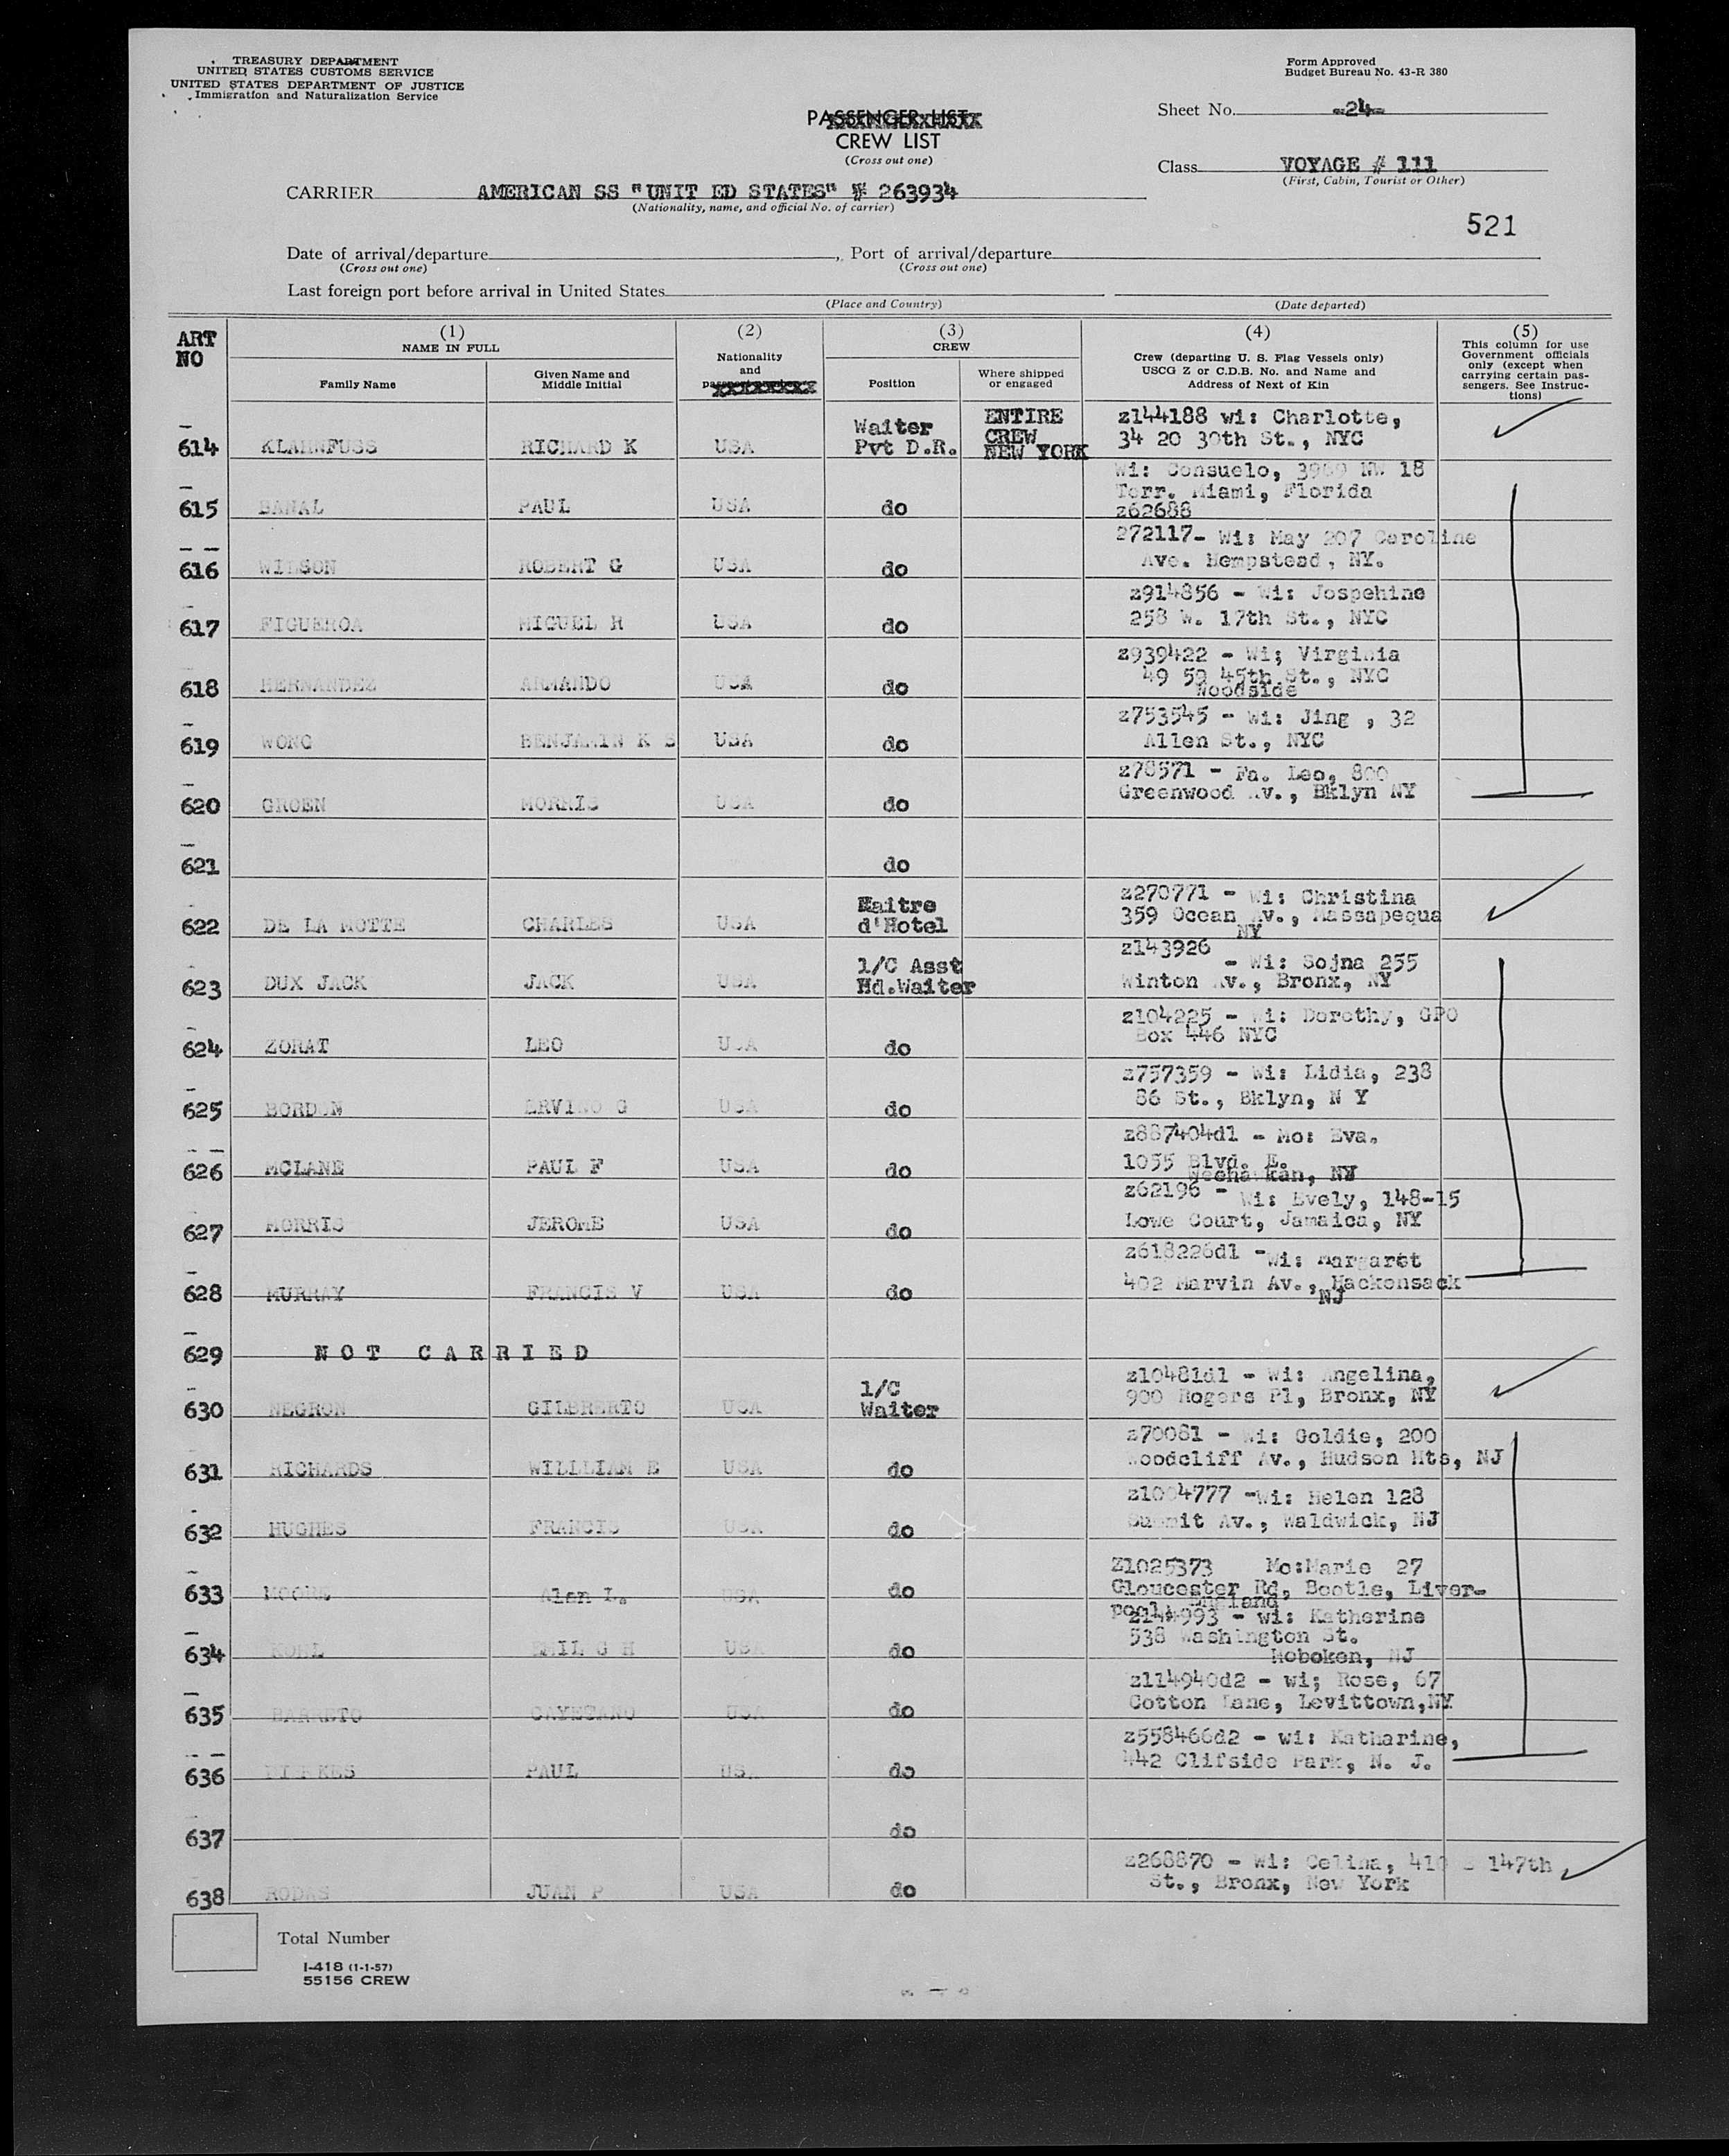 TREASURY DEPARTMENT
UNITED STATES CUSTOMS SERVICE
UNITED STATES DEPARTMENT OF JUSTICE
Immigration and Naturalization Service
Form Approved
Budget Bureau No. 43-R 380
PASSENGER LIST
CREW LIST
(Cross out one)
Sheet No. -24-
Class VOYAGE # 111
(First, Cabin, Tourist or Other)
CARRIER AMERICAN SS "UNIT ED STATES" # 263934
(Nationality, name, and official No. of carrier)
521
Date of arrival/departure , Port of arrival/departure
(Cross out one) (Cross out one)
Last foreign port before arrival in United States
(Place and Country) (Date departed)
ART NO
(1) NAME IN FULL
Family Name
Given Name and Middle Initial
(2) Nationality and
(3) CREW
Position
Where shipped or engaged
(4) Crew (departing U. S. Flag Vessels only) USCG Z or C.D.B. No. and Name and Address of Next of Kin
(5) This column for use Government officials only (except when carrying certain passengers. See Instructions)
614 KLAHNFUSS RICHARD K USA Waiter Pvt D.R. ENTIRE CREW NEW YORK z144188 wi: Charlotte, 34 20 30th St., NYC
615 BANAL PAUL USA do Wi: Consuelo, NW 18 Terr. Miami, Florida z62688
616 WILSON ROBERT G USA do 272117- Wi: May 207 Caroline Ave. Hempstead, NY.
617 FIGUEROA MIGUEL H USA do z914856 - Wi: Jospehine 258 W. 17th St., NYC
618 HERNANDEZ ARMANDO USA do z939422 - Wi; Virginia 49 59 45th St., NYC Woodside
619 WONG BENJAMIN K S USA do z753545 - Wi: Jing , 32 Allen St., NYC
620 GROEN MORRIS USA do z78571 - Fa. Leo, 800 Greenwood Av., Bklyn NY
621 do
622 DE LA MOTTE CHARLES USA Maitre d'Hotel z270771 - Wi: Christina 359 Ocean Av., Massapequa NY
623 DUX JACK JACK USA 1/C Asst Hd.Waiter z143926 - Wi: Sojna 255 Winton Av., Bronx, NY
624 ZORAT LEO USA do z104225 - Wi: Dorothy, GPO Box 446 NYC
625 BORDEN ERVING G USA do z757359 - Wi: Lidia, 238 86 St., Bklyn, N Y
626 MCLANE PAUL F USA do z887404d1 - Mo: Eva. 1055 Blvd. E. Weehawkan, NJ
627 MORRIS JEROME USA do z62196 - Wi: Evely, 148-15 Lowe Court, Jamaica, NY
628 MURRAY FRANCIS V USA do z618226d1 -Wi: Margaret 402 Marvin Av., Hackensack NJ
629 NOT CARRIED
630 NEGRON GILBRERTO USA 1/C Waiter z10481d1 - Wi: Angelina, 900 Rogers Pl, Bronx, NY
631 RICHARDS WILLLIAM E USA do z70081 - Wi: Goldie, 200 Woodcliff Av., Hudson Hts, NJ
632 HUGHES FRANCIS USA do z1004777 -Wi: Helen 128 Summit Av., Waldwick, NJ
633 MOORE Alan L. USA do Z1025373 Mo:Marie 27 Gloucester Rd, Bootle, Liverpool, England
634 KOHL EMIL G H USA do z144993 - wi: Katherine 538 Washington St. Hoboken, NJ
635 BARRETO CAYETANO USA do z114940d2 - wi; Rose, 67 Cotton Lane, Levittown,NY
636 PAUL USA do z558466d2 - wi: Katharine, 442 Clifside Park, N. J.
637 do
638 RODAS JUAN P USA do z268870 - Wi: Celina, 410 E 147th St., Bronx, New York
Total Number
I-418 (1-1-57)
55156 CREW